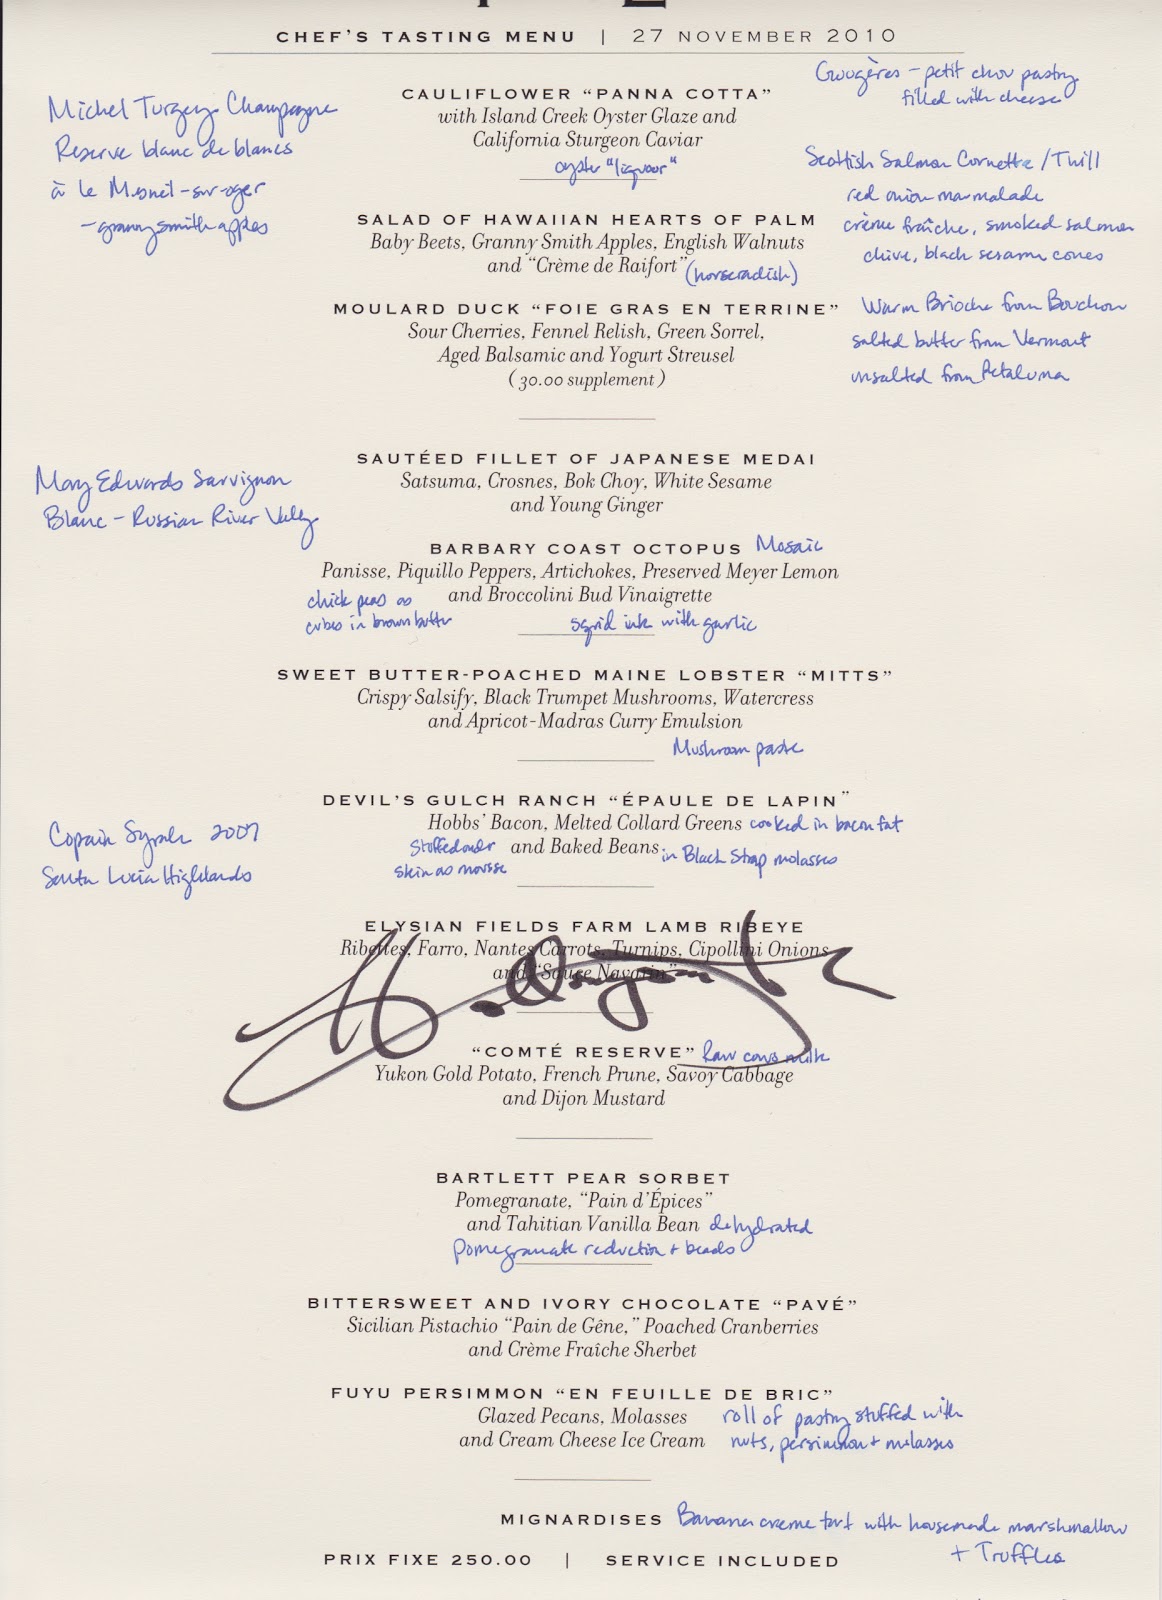 CHEF'S TASTING MENU | 27 NOVEMBER 2010
Gougères - petit chou pastry
filled with cheese
Michel Turgy Champagne
Reserve blanc de blancs
à le Mesnil-sur-oger
- granny smith apples
CAULIFLOWER "PANNA COTTA"
with Island Creek Oyster Glaze and
California Sturgeon Caviar
oyster "liquour"
Scottish Salmon Cornette / Tuill
red onion marmalade
crème fraîche, smoked salmon
chive, black sesame cones
SALAD OF HAWAIIAN HEARTS OF PALM
Baby Beets, Granny Smith Apples, English Walnuts
and "Crème de Raifort" (horseradish)
MOULARD DUCK "FOIE GRAS EN TERRINE"
Sour Cherries, Fennel Relish, Green Sorrel,
Aged Balsamic and Yogurt Streusel
(30.00 supplement)
Warm Brioche from Bouchon
salted butter from Vermont
unsalted from Petaluma
SAUTÉED FILLET OF JAPANESE MEDAI
Satsuma, Crosnes, Bok Choy, White Sesame
and Young Ginger
Mary Edwards Sauvignon
Blanc - Russian River Valley
BARBARY COAST OCTOPUS Mosaic
Panisse, Piquillo Peppers, Artichokes, Preserved Meyer Lemon
and Broccolini Bud Vinaigrette
chick peas as
cubes in brown butter
squid ink with garlic
SWEET BUTTER-POACHED MAINE LOBSTER "MITTS"
Crispy Salsify, Black Trumpet Mushrooms, Watercress
and Apricot-Madras Curry Emulsion
Mushroom paste
DEVIL'S GULCH RANCH "ÉPAULE DE LAPIN"
Hobbs' Bacon, Melted Collard Greens cooked in bacon fat
and Baked Beans in Black Strap molasses
Stuffed under
skin as mousse
Copain Syrah 2007
Santa Lucia Highlands
ELYSIAN FIELDS FARM LAMB RIBEYE
Ribettes, Farro, Nantes Carrots, Turnips, Cipollini Onions
and "Sauce Navarin"
"COMTÉ RESERVE" Raw cows milk
Yukon Gold Potato, French Prune, Savoy Cabbage
and Dijon Mustard
BARTLETT PEAR SORBET
Pomegranate, "Pain d'Épices"
and Tahitian Vanilla Bean dehydrated
pomegranate reduction + beads
BITTERSWEET AND IVORY CHOCOLATE "PAVÉ"
Sicilian Pistachio "Pain de Gêne," Poached Cranberries
and Crème Fraîche Sherbet
FUYU PERSIMMON "EN FEUILLE DE BRIC"
Glazed Pecans, Molasses
and Cream Cheese Ice Cream
roll of pastry stuffed with
nuts, persimmon + molasses
MIGNARDISES Banana creme tart with housemade marshmallow
+ Truffles
PRIX FIXE 250.00 | SERVICE INCLUDED